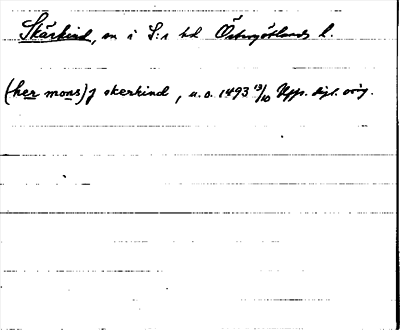 Skärkind, sn i S:t hd Östergötlands l.
(her mons) j skerkind, u.o. 1493 13/10 Upps. dipl. orig.